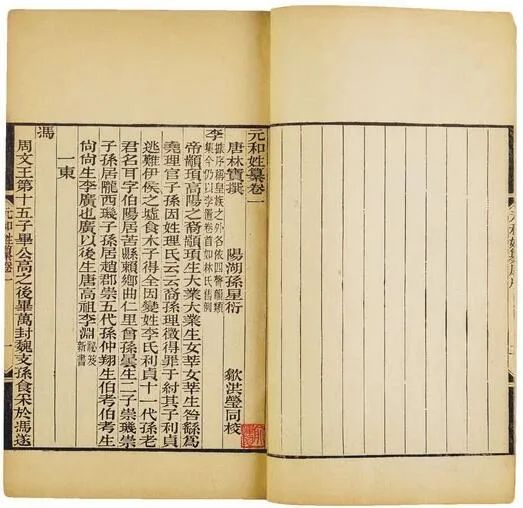 元和姓纂卷一
唐林寶撰 陽湖孫星衍 歙洪瑩同校
李 據序稱皇族之外各依四聲韻類
集今仍以李置卷首如林氏舊例
帝顓頊高陽之裔顓頊生大業大業生女莘女莘生咎繇為
堯理官子孫因姓理氏云云裔孫理徵得罪于紂其子利貞
逃難伊侯之墟食木子得全因變姓李氏利貞十一代孫老
君名耳字伯陽居苦縣賴鄉曲仁里曾孫曇生二子崇璣崇
子孫居隴西璣子孫居趙郡崇五代孫仲翔生伯考伯考生
尚尚生李廣也廣以後生唐高祖李淵 秘笈
新書
一東
馮
周文王第十五子畢公高之後畢萬封魏支孫食采於馮遂
元和姓纂卷一 一